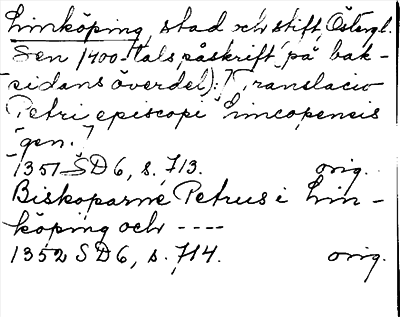 Linköping, stad och stift, Östergl.
Sen 1400-tals påskrift på bak-
sidans överdel): [Translacio
Petri episcopi Lincopensis
gen.]
1351 SD6, s. 713. orig.
Biskoparne Petrus i Lin-
köping och ----
1352 SD6, s. 714. orig.